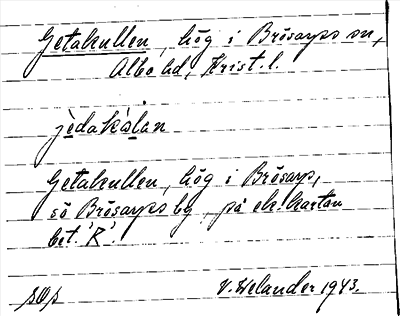 Getakullen, hög i Brösarps sn,
Albo hd, Krist. l.
jèdakálan
Getakullen, hög i Brösarp,
sö Brösarps by, på ek. kartan
bet. 'R'.
V. Welander 1943.